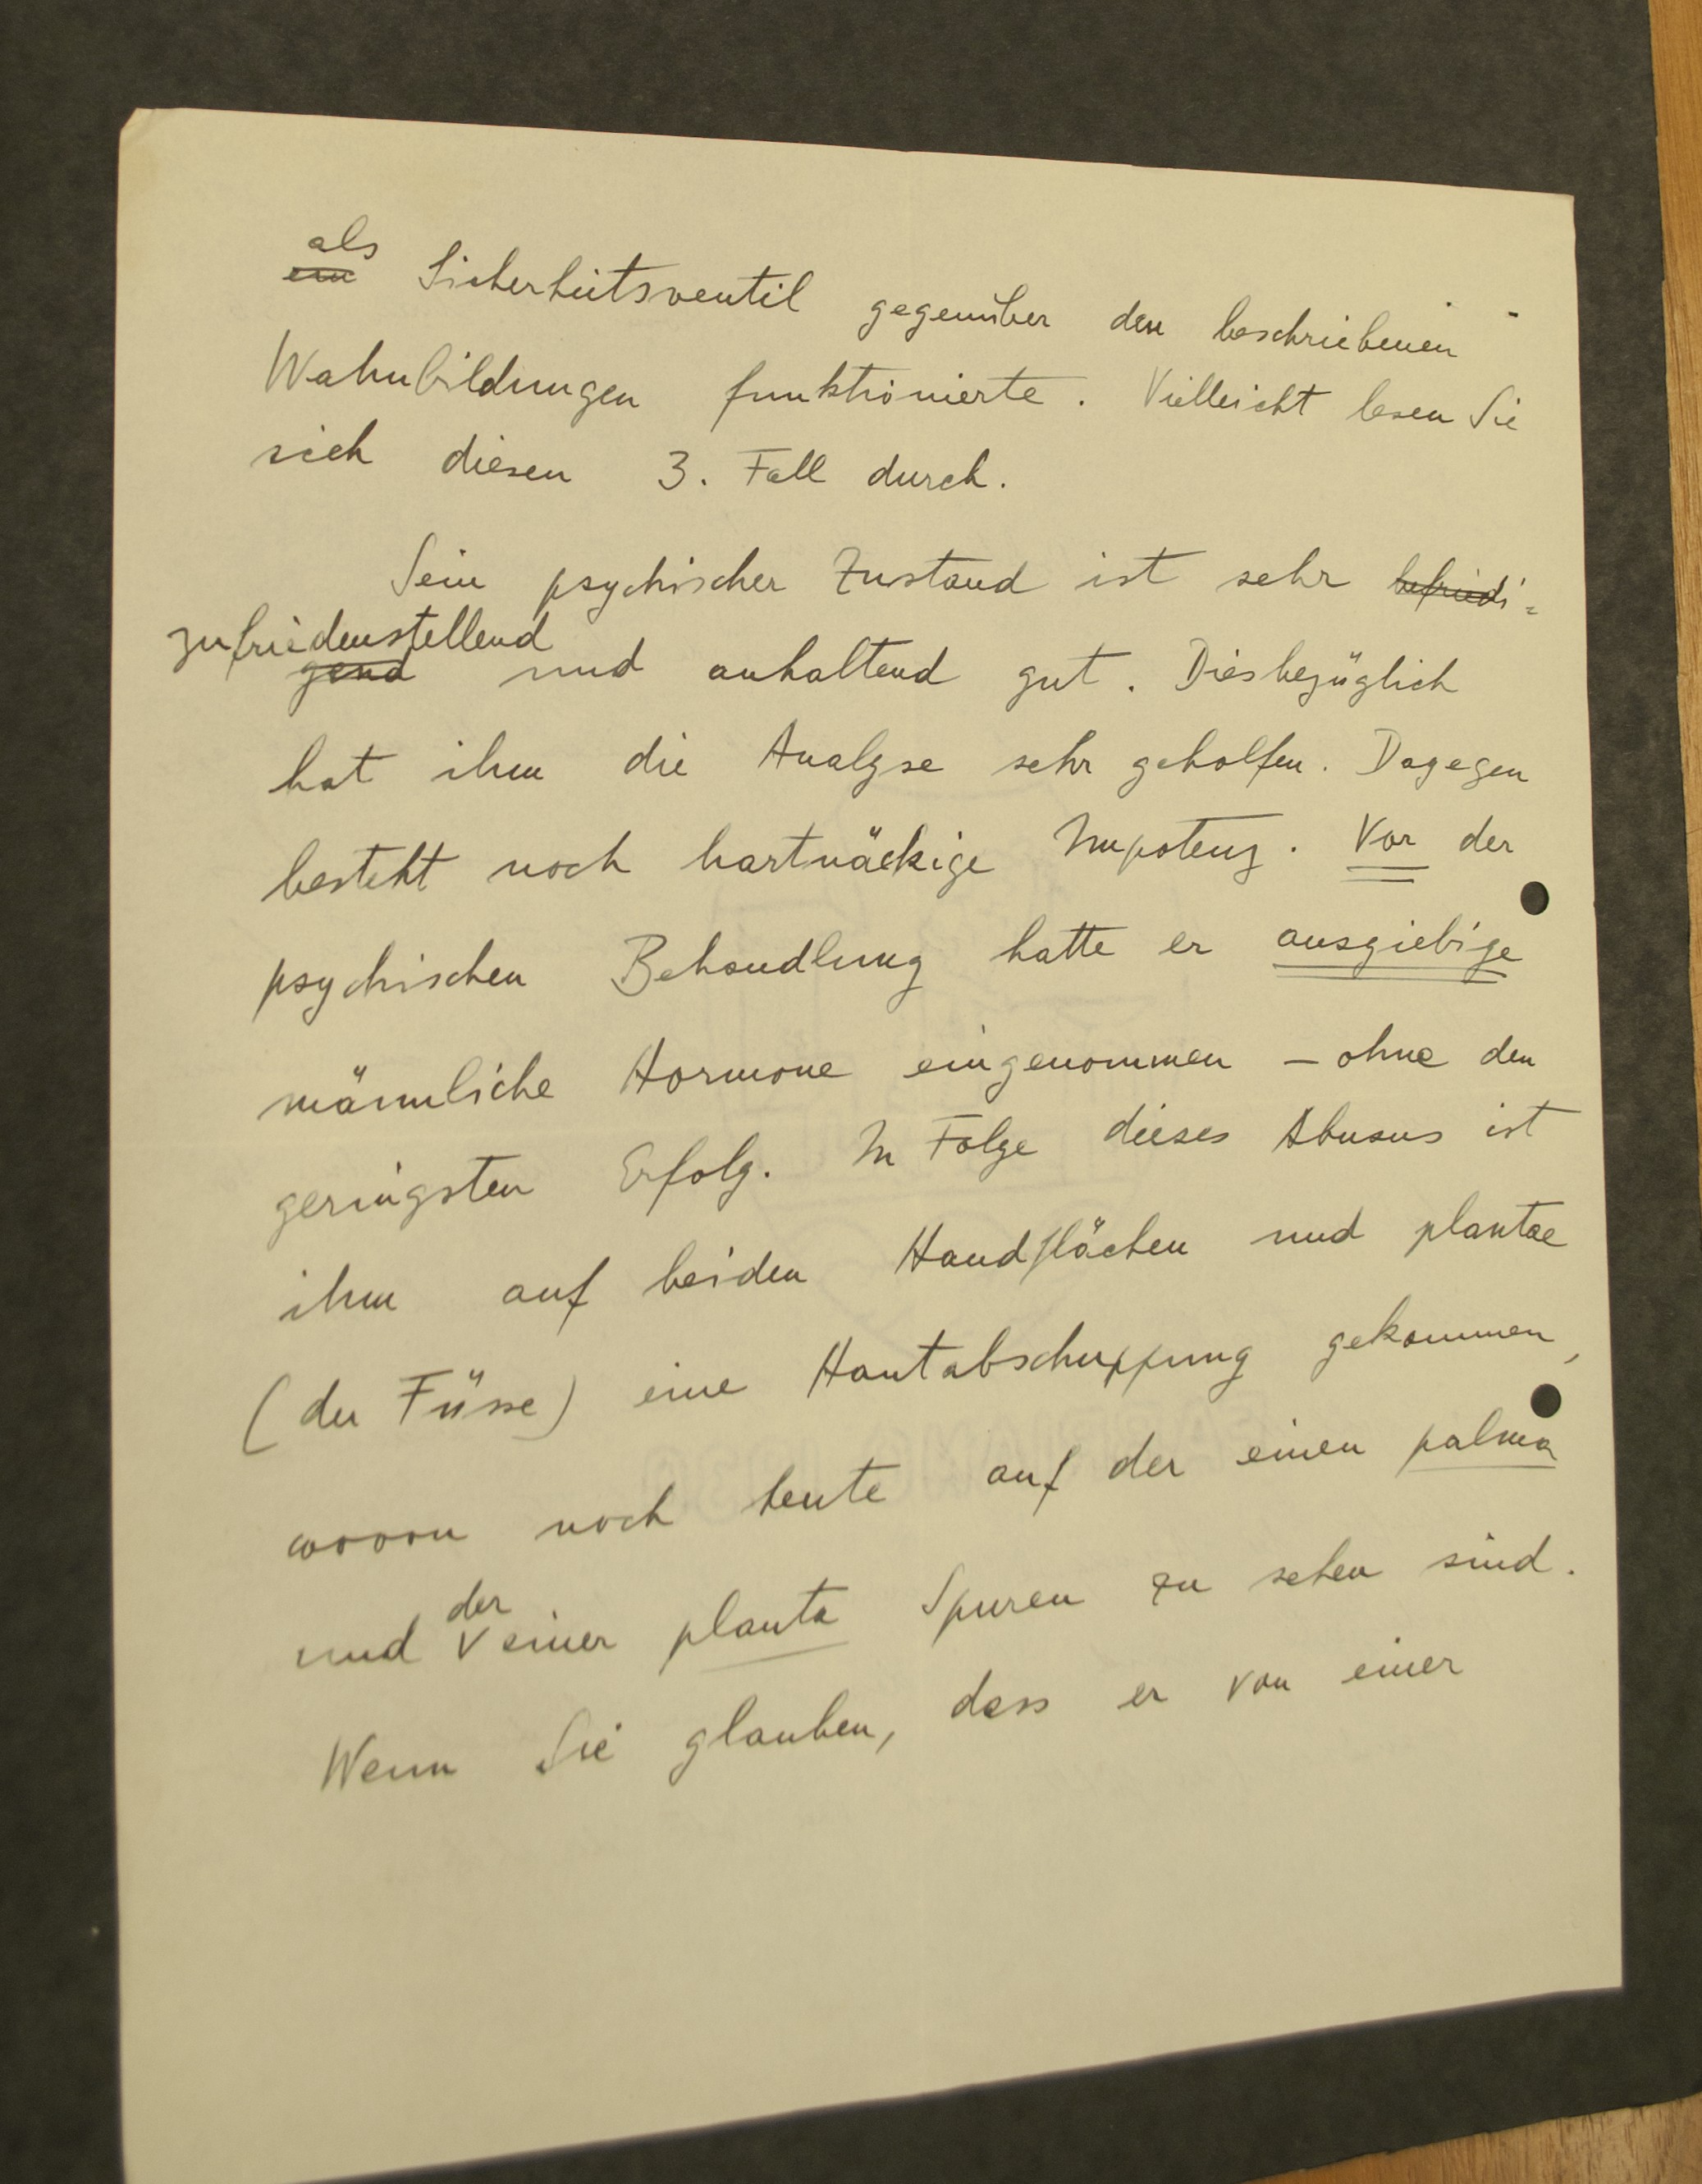 als
ein Sicherheitsventil gegenüber den beschriebenen
Wahnbildungen funktionierte. Vielleicht lesen Sie
sich diesen 3. Fall durch.
Sein psychischer Zustand ist sehr befriedi=
zufriedenstellend
gend und anhaltend gut. Diesbezüglich
hat ihm die Analyse sehr geholfen. Dagegen
besteht noch hartnäckige Impotenz. Vor der
psychischen Behandlung hatte er ausgiebige
männliche Hormone eingenommen – ohne den
geringsten Erfolg. In Folge dieses Abusus ist
ihm auf beiden Handflächen und plantae
(der Füsse) eine Hautabschuppung gekommen,
wovon noch heute auf der einen palma
der
und V einer planta Spuren zu sehen sind.
Wenn Sie glauben, dass er von einer